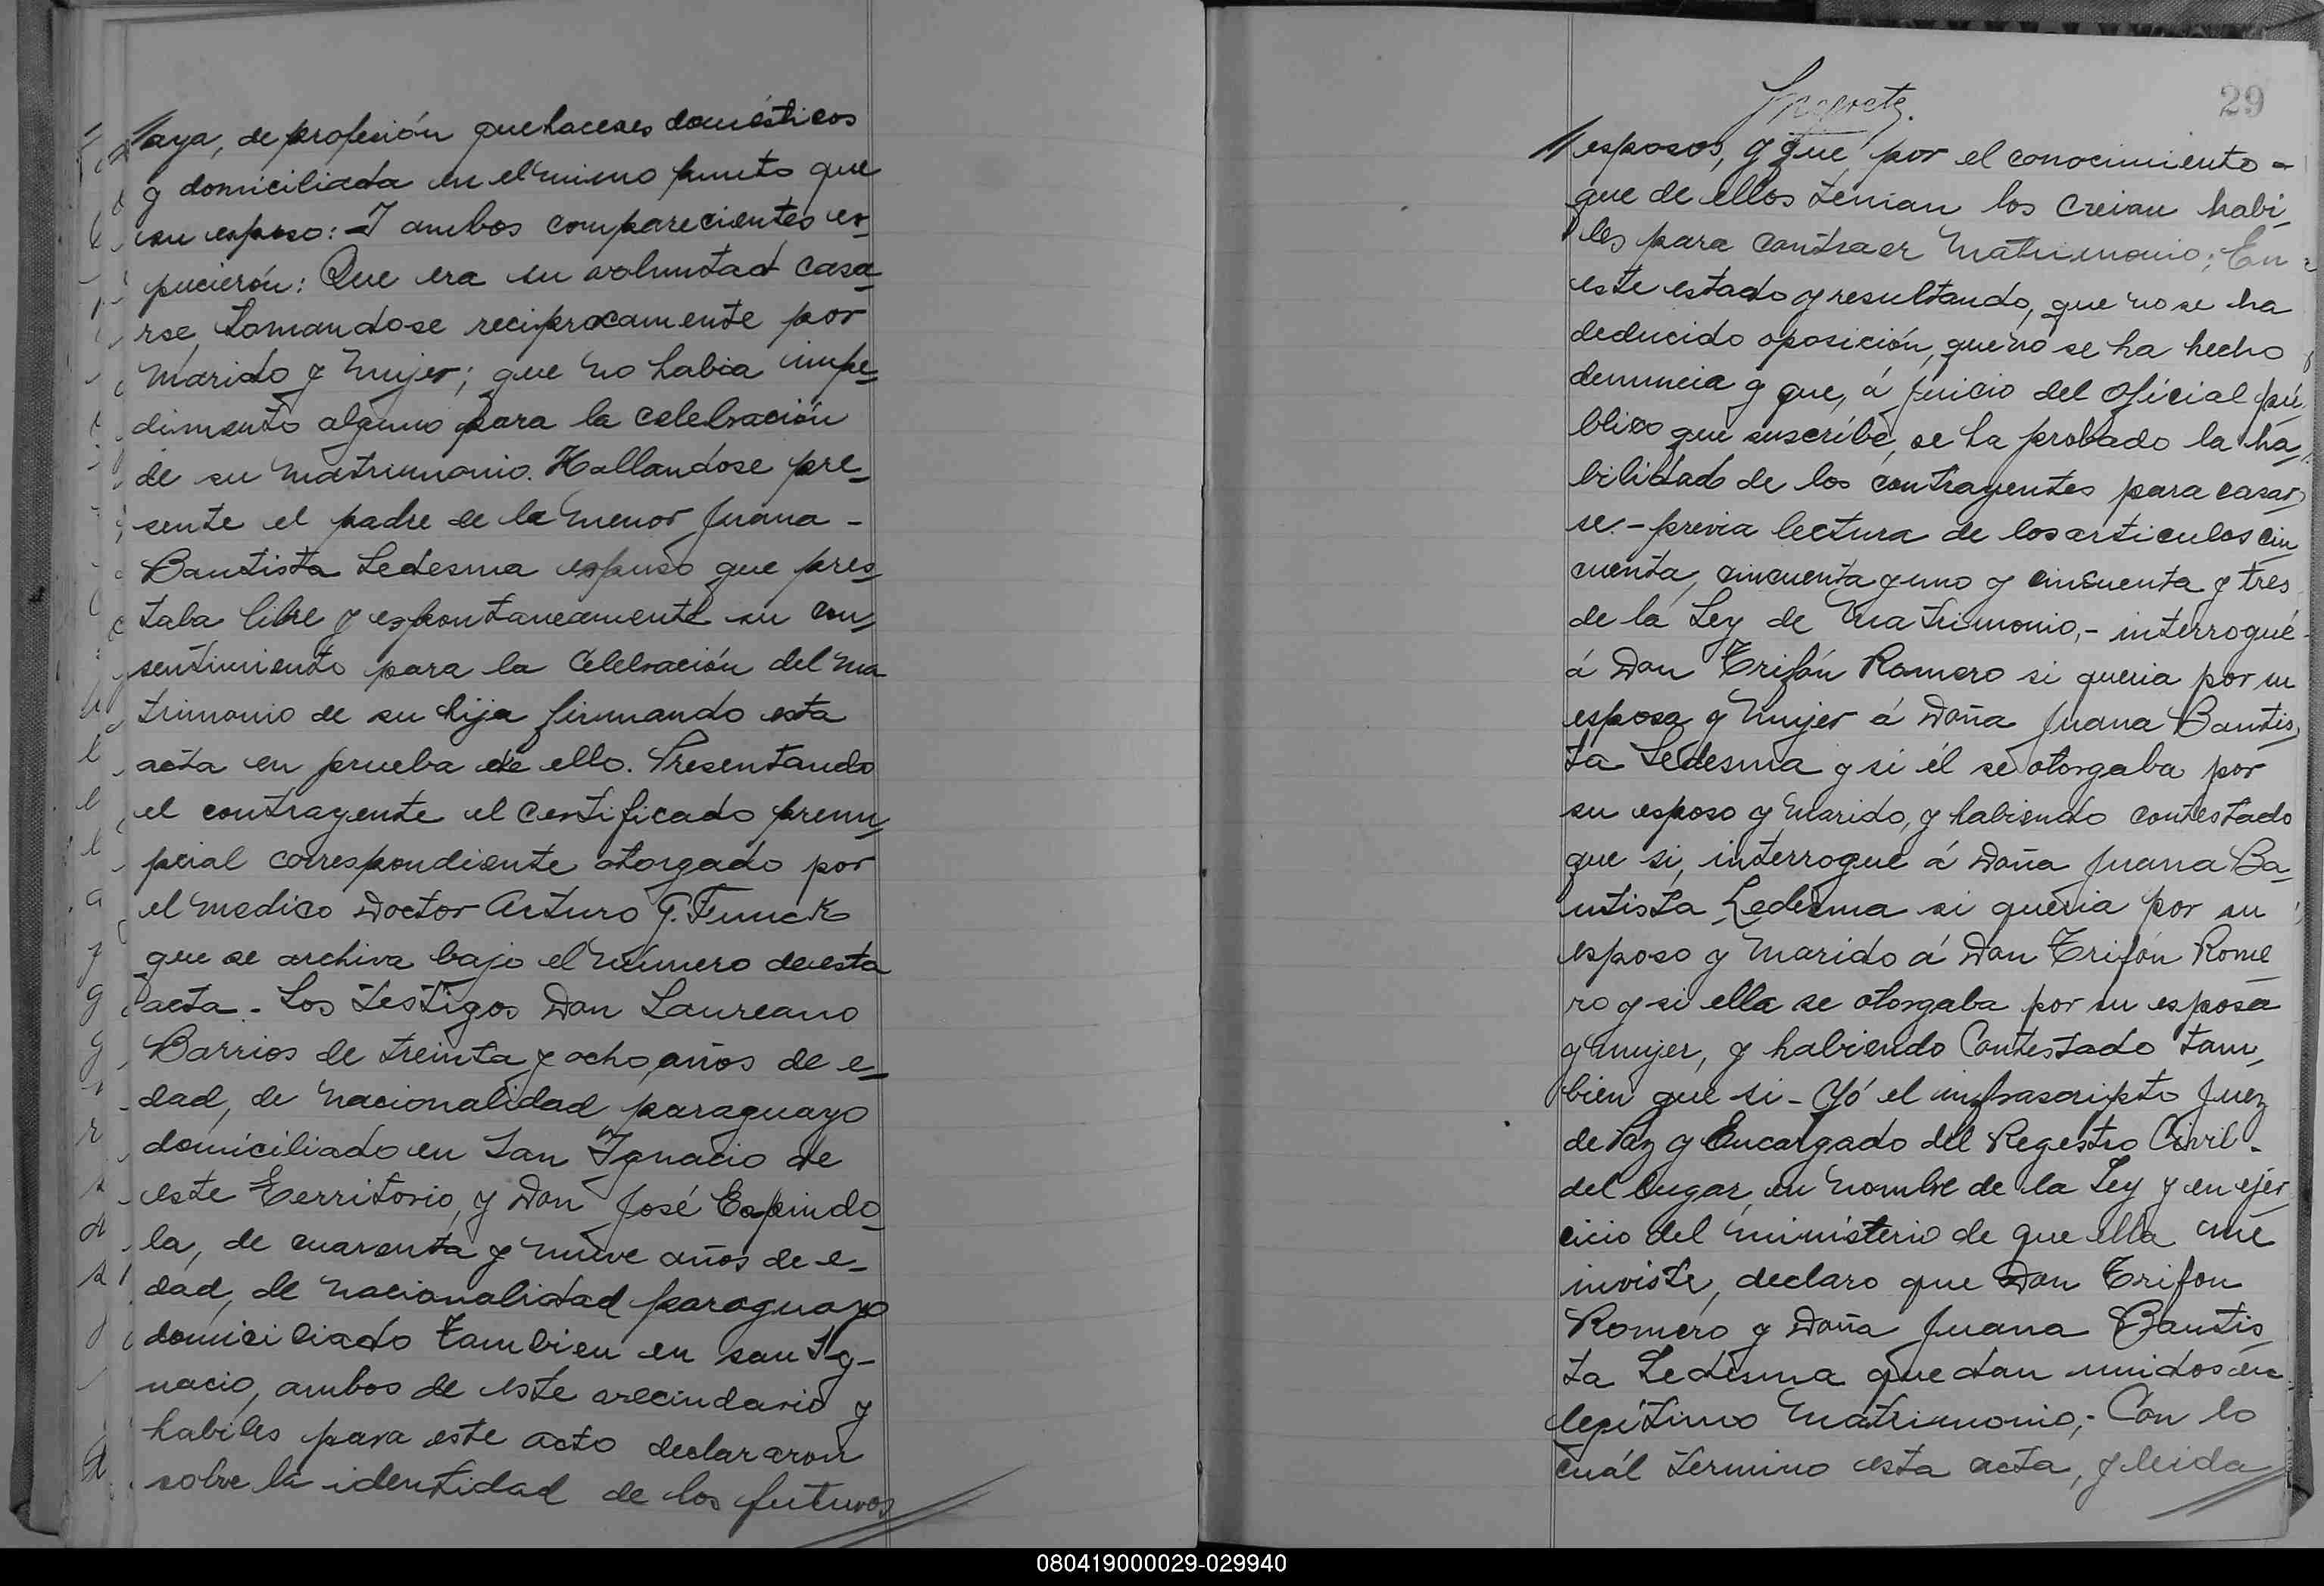 //aya, de profesión quehaceres domésticos
y domiciliada en el mismo punto que
su esposo: - I ambos comparecientes es-
pucierón: Que era su voluntad casa-
rse, tomandose reciprocamente por
marido y mujer; que no habia impe-
dimento alguno para la celebración
de su matrimonio. Hallandose pre-
sente el padre de la menor Juana -
Bautista Ledesma espuso que pres-
taba libre y espontaneamente su con-
sentimiento para la celebración del ma
trimonio de su hija firmando esta
acta en prueba de ello. Presentando
el contrayente el certificado prenu-
pcial correspondiente otorgado por
el medico Doctor Arturo G. Funck
que se archiva bajo el número de esta
acta - Los testigos Don Laureano
Barrios de treinta y ocho, años de e-
dad, de nacionalidad paraguayo
domiciliado en San Ignacio de
este Territorio, y Don José Espindo-
la, de cuarenta y nueve años de e-
dad, de nacionalidad paraguayo
domiciliado tambien en san Ig-
nacio, ambos de este vecindario y
habiles para este acto declararon
sobre la identidad de los futuros
29
//esposos, y que por el conocimiento -
que de ellos tenian los creian habi-
les para contraer matrimonio; En
este estado y resultando, que no se ha
deducido oposición, que no se ha hecho
denuncia y que, á juicio del oficial pú-
blico que suscribe, se ha probado la ha-
bilidad de los contrayentes para casar-
se. - previa lectura de los articulos cin
cuenta, cincuenta y uno y cincuenta y tres
de la Ley de Matrimonio, - interrogué
á Don Trifón Romero si queria por su
esposa y mujer á Doña Juana Bautis-
ta Ledesma y si él se otorgaba por
su esposo y marido, y habiendo contestado
que si, interrogue á Doña Juana Ba-
utista Ledesma si queria por su
esposo y marido á Don Trifón Rome
ro y si ella se otorgaba por su esposa
y mujer, y habiendo Contestado tam-
bien que si - Yó el infrascripto Juez
de Paz y Encargado del Regestro Civil -
del lugar, en nombre de la Ley y en ejer
cicio del ministerio de que ella me
inviste, declaro que Don Trifon
Romero y Doña Juana Bautis
ta Ledesma quedan unidos en
legítimo matrimonio; - Con lo
cuál termino esta acta, y leida
080419000029-029940